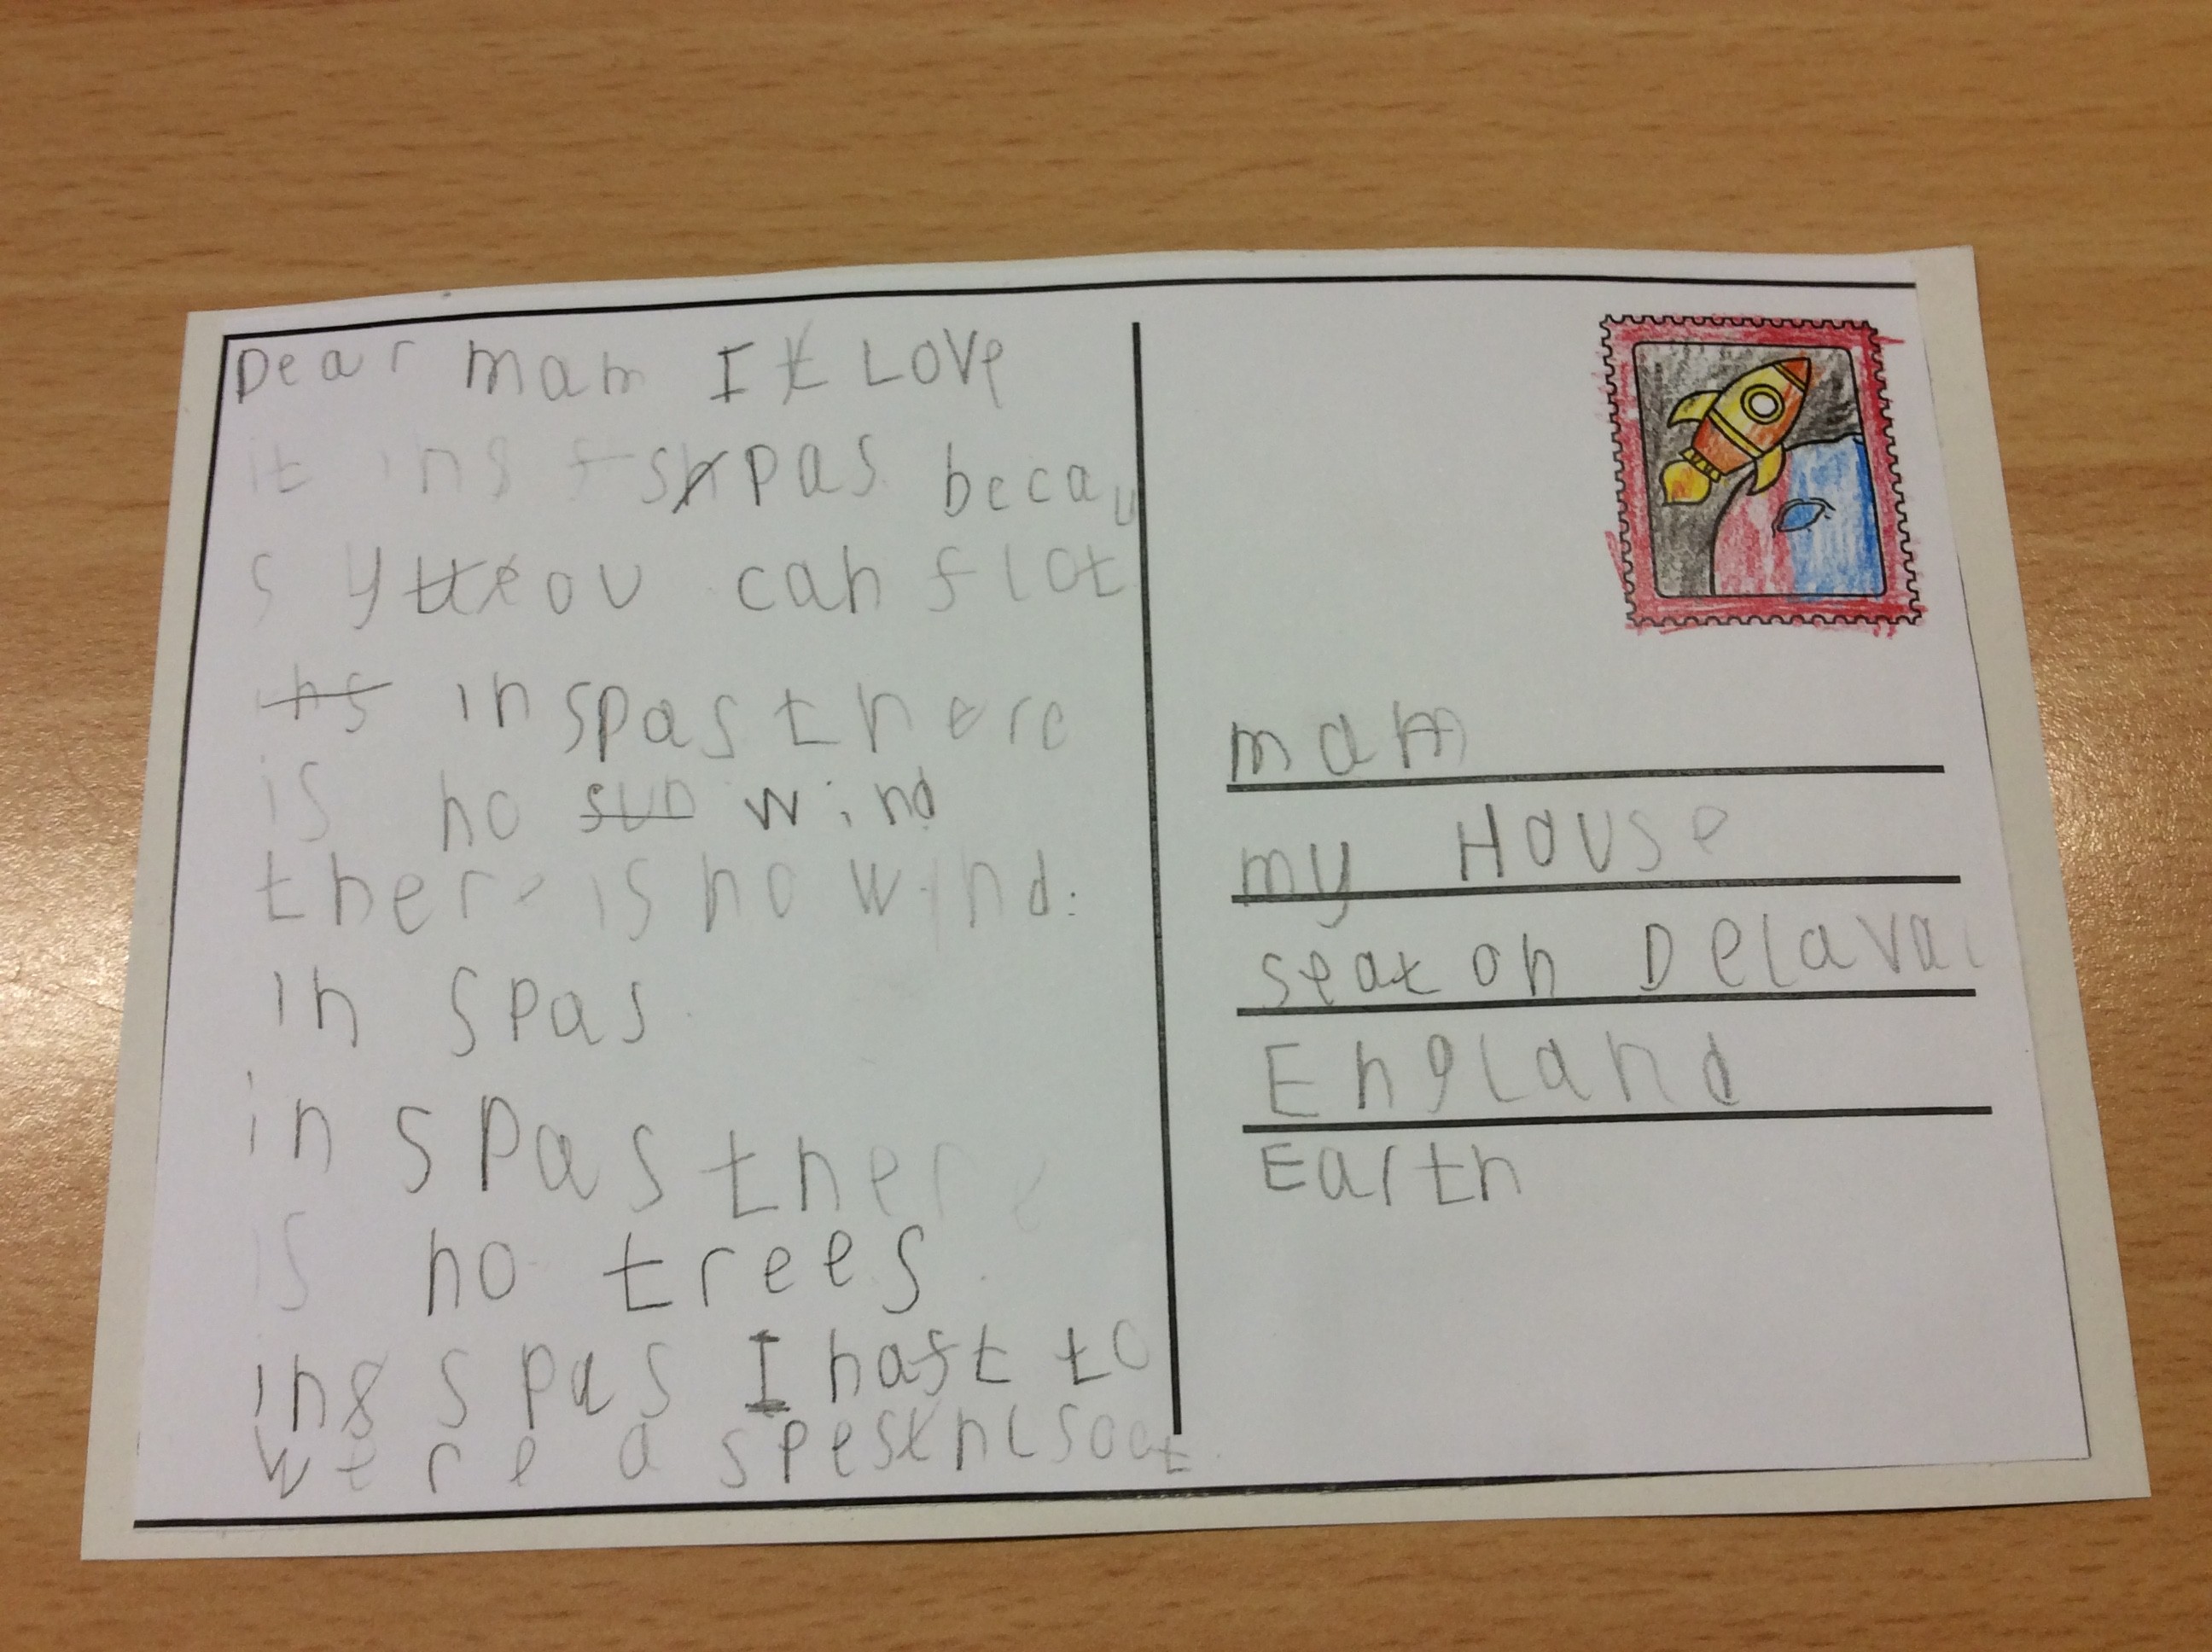 Dear mam I LOVE
it in spas becau
s you can flot
in spas there
is no sun wind
there is no wind.
in spas.
in spas there
is no trees.
ing spas I haft to
were a
mam
my House
seaton Delaval
England
Earth